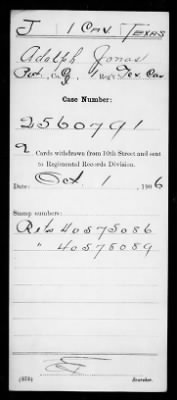 J 1 Cav. Texas
Adolph Jonas
Pvt., Co. G, 1 Reg't Tex. Cav.
Case Number:
2560791
2 Cards withdrawn from 10th Street and sent
to Regimental Records Division.
Date: Oct. 1, 1906
Stamp numbers:
Rebs 40575086
" 40575089
(859) Searcher.